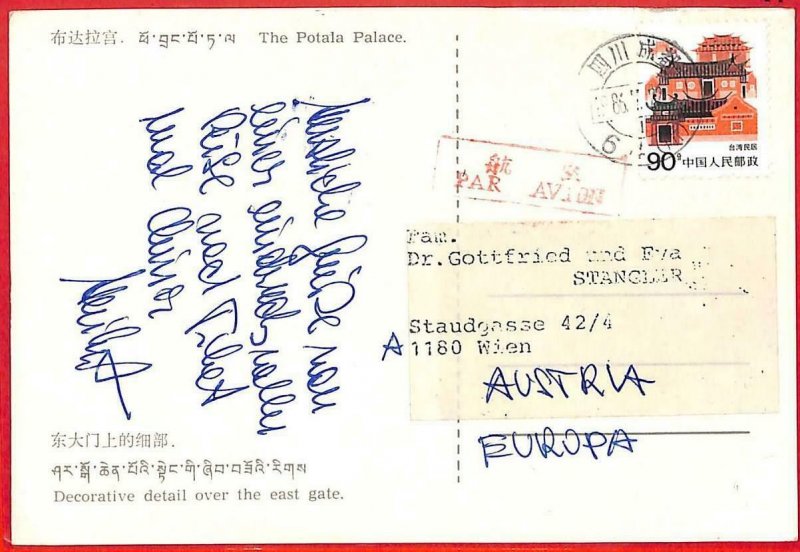 布达拉宫. ཕོ་བྲང་པོ་ཏ་ལ The Potala Palace.
Herzliche Grüße von
einer eindrucksvollen
Reise nach Tibet
und China
四川 成都
台湾民居
90分 中国人民邮政
航 空
PAR AVION
Fam.
Dr.Gottfried und Eva
STANGLER
Staudgasse 42/4
A 1180 Wien
AUSTRIA
EUROPA
东大门上的细部.
ཤར་སྒོ་ཆེན་པོའི་སྟེང་གི་ཞིབ་བཟོའི་རིགས
Decorative detail over the east gate.